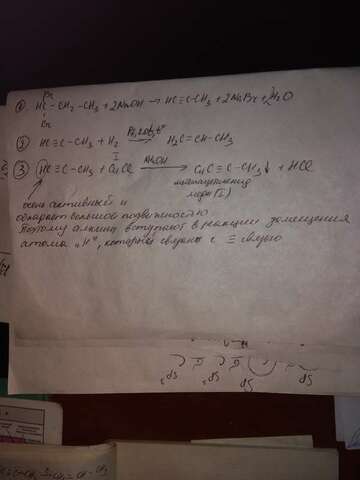 Br
① HC – CH₂ – CH₃ + 2NaOH → HC ≡ C – CH₃ + 2NaBr + 2H₂O
Br
② HC ≡ C – CH₃ + H₂ → H₂C = CH – CH₃
I
③ HC ≡ C – CH₃ + CuCl NaOH → CuC ≡ C – CH₃↓ + HCl
меди (I)
очень активный и
обладает большой подвижностью
Поэтому алкины вступают в реакции замещения
атома „H", которые связаны с ≡ связью